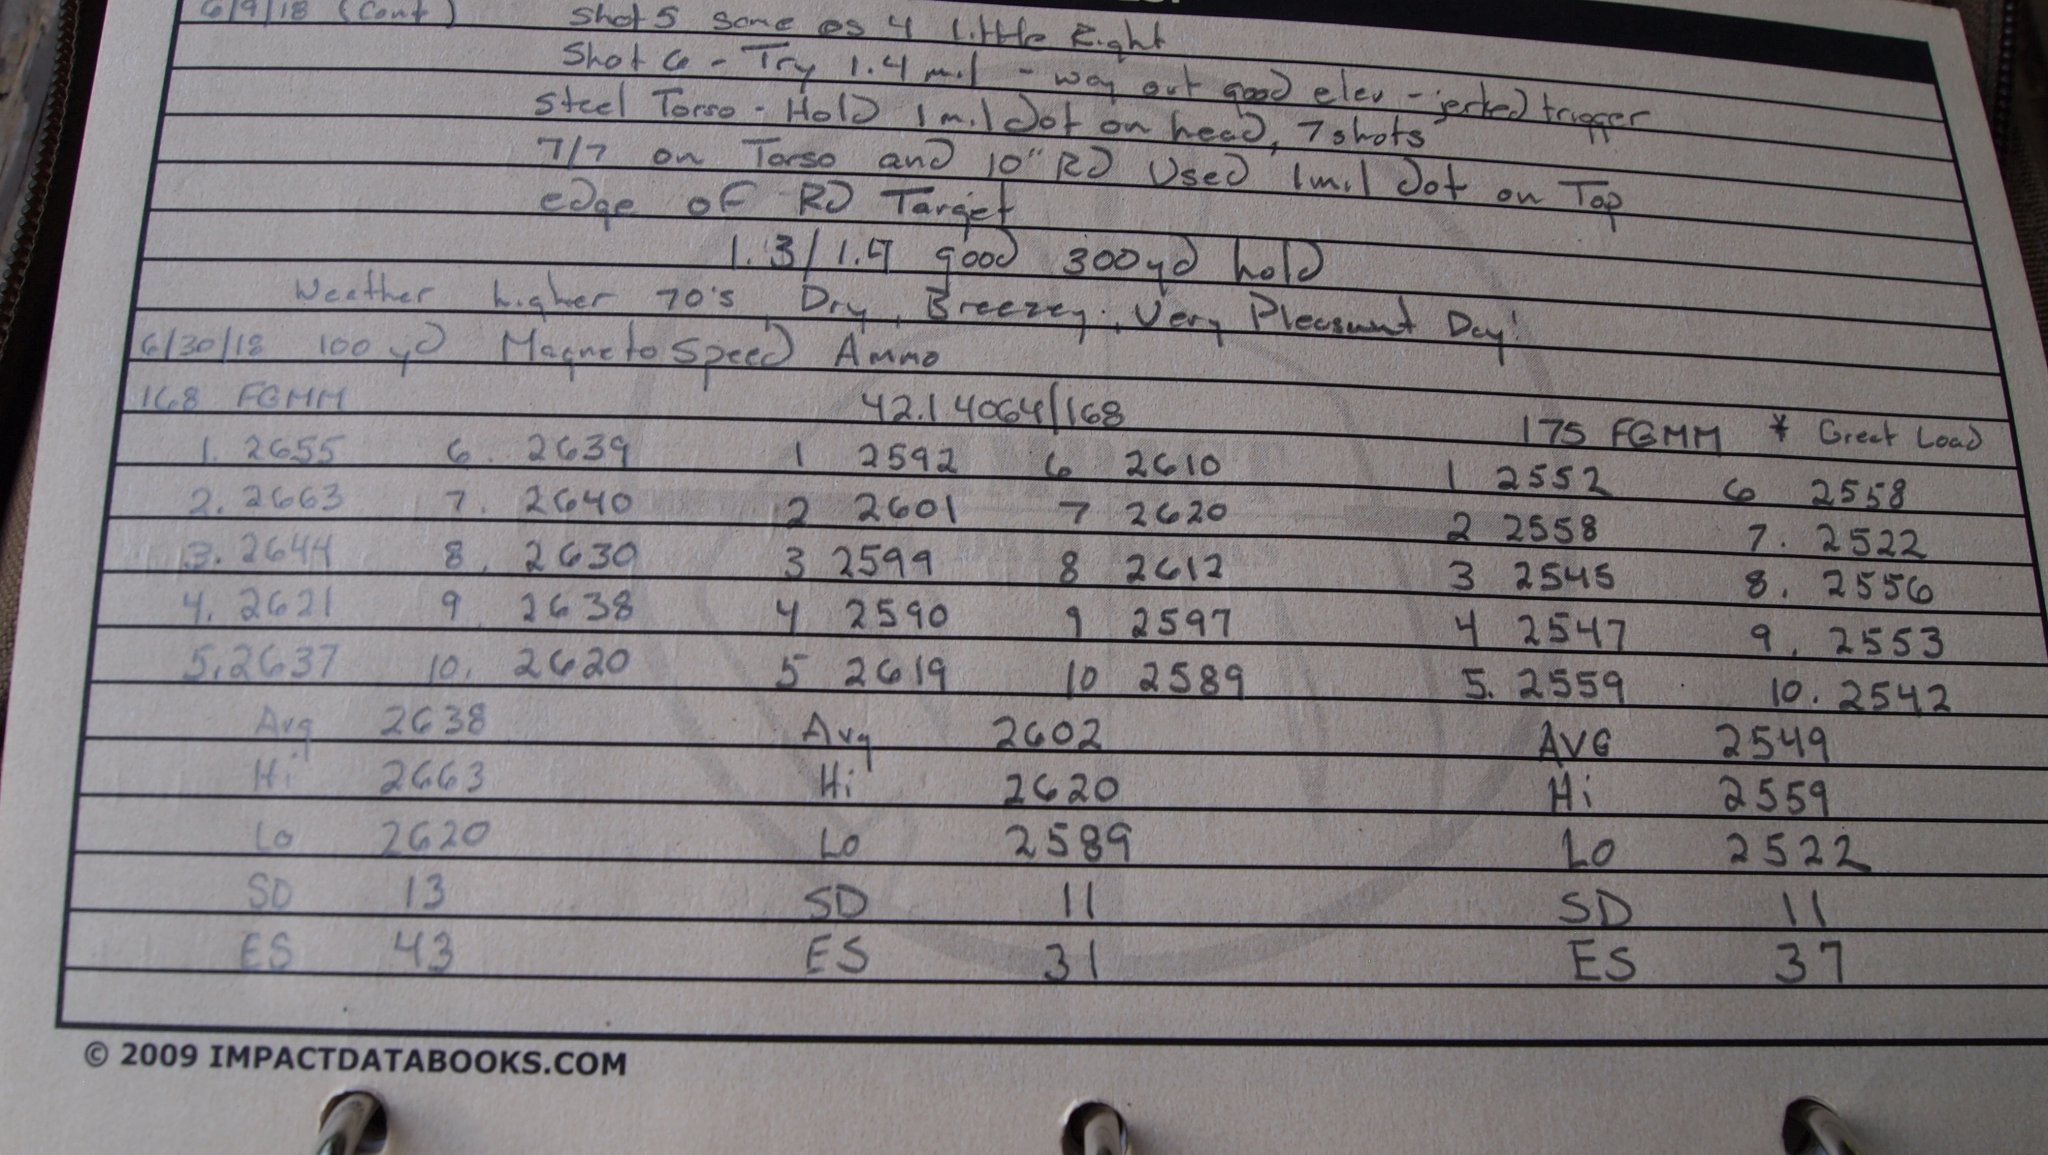 6/9/18 (Cont) Shot 5 same as 4 little Right
Shot 6 - Try 1.4 mil - way out good elev - jerked trigger
Steel Torso - Hold 1 mil dot on head, 7 shots
7/7 on Torso and 10" RD Used 1 mil dot on Top
edge of RD Target
1.3/1.4 good 300yd hold
Weather higher 70's, Dry, Breezey, Very Pleasant Day!
6/30/18 100 yd MagnetoSpeed Ammo
168 FGMM 42.1 4064/168 175 FGMM * Great Load
1. 2655 6. 2639 1 2592 6 2610 1 2552 6 2558
2. 2663 7. 2640 2 2601 7 2620 2 2558 7. 2522
3. 2644 8. 2630 3 2599 8 2612 3 2545 8. 2556
4. 2621 9 2638 4 2590 9 2597 4 2547 9. 2553
5. 2637 10. 2620 5 2619 10 2589 5. 2559 10. 2542
Avg 2638 Avg 2602 AVG 2549
Hi 2663 Hi 2620 Hi 2559
Lo 2620 Lo 2589 LO 2522
SD 13 SD 11 SD 11
ES 43 ES 31 ES 37
© 2009 IMPACTDATABOOKS.COM